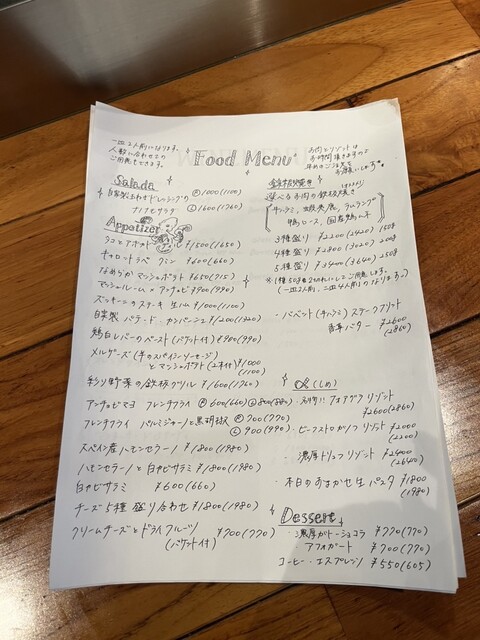 一皿2人前になります。
人数に合わせての
ご用意もできます。
Food Menu
お肉とリゾットは
お時間頂きますので
早めのご注文を
お願いします。
Salada
自家製玉ねぎドレッシングの
ツナナッツサラダ
Ⓡ1000(1100)
Ⓛ1600(1760)
Appetizer
タコとアボカド ¥1500(1650)
キャロットラペ クミン ¥600(660)
なめらかマッシュポテト ¥650(715)
マッシュルーム × アンチョビ ¥900(990)
ズッキーニのステーキ 生ハム ¥1000(1100)
自家製 パテ・ド・カンパーニュ ¥1200(1320)
鶏白レバーのペースト(バゲット付) ¥900(990)
メルゲーズ(羊のスパイシーソーセージ)
とマッシュポテト(2本付) ¥1000
(1100)
彩り野菜の鉄板グリル ¥1600(1760)
アンチョビマヨ フレンチフライ Ⓡ600(660) Ⓛ800(880)
フレンチフライ パルミジャーノと黒胡椒 Ⓡ700(770)
Ⓛ900(990)
スペイン産ハモンセラーノ ¥1800(1980)
ハモンセラーノと白カビサラミ ¥1800(1980)
白カビサラミ ¥600(660)
チーズ5種盛り合わせ ¥1800(1980)
クリームチーズとドライフルーツ ¥700(770)
(バケット付)
鉄板焼き
選べるお肉の鉄板焼き
牛ハラミ, 蝦夷鹿, ラムランプ
鴨ロース, 国産鴨ムネ
3種盛り ¥2200(2420) 150g
4種盛り ¥2800(3020) 200g
5種盛り ¥3400(3640) 250g
※1種50gを2切れにしてご用意します。
(一皿2人前, 二皿4人前となります。)
・バベット(牛ハラミ) ステークフリット
香草バター ¥2600
(2860)
〆(しめ)
・別格!! フォアグラ リゾット
¥2600(2860)
・ビーフストロガノフ リゾット ¥2000
(2200)
・濃厚トリュフリゾット ¥2400
(2640)
・本日のおまかせ生パスタ ¥1800
(1980)
Dessert
・濃厚ガトーショコラ ¥770(770)
・アフォガート ¥700(770)
コーヒー・エスプレッソ ¥550(605)